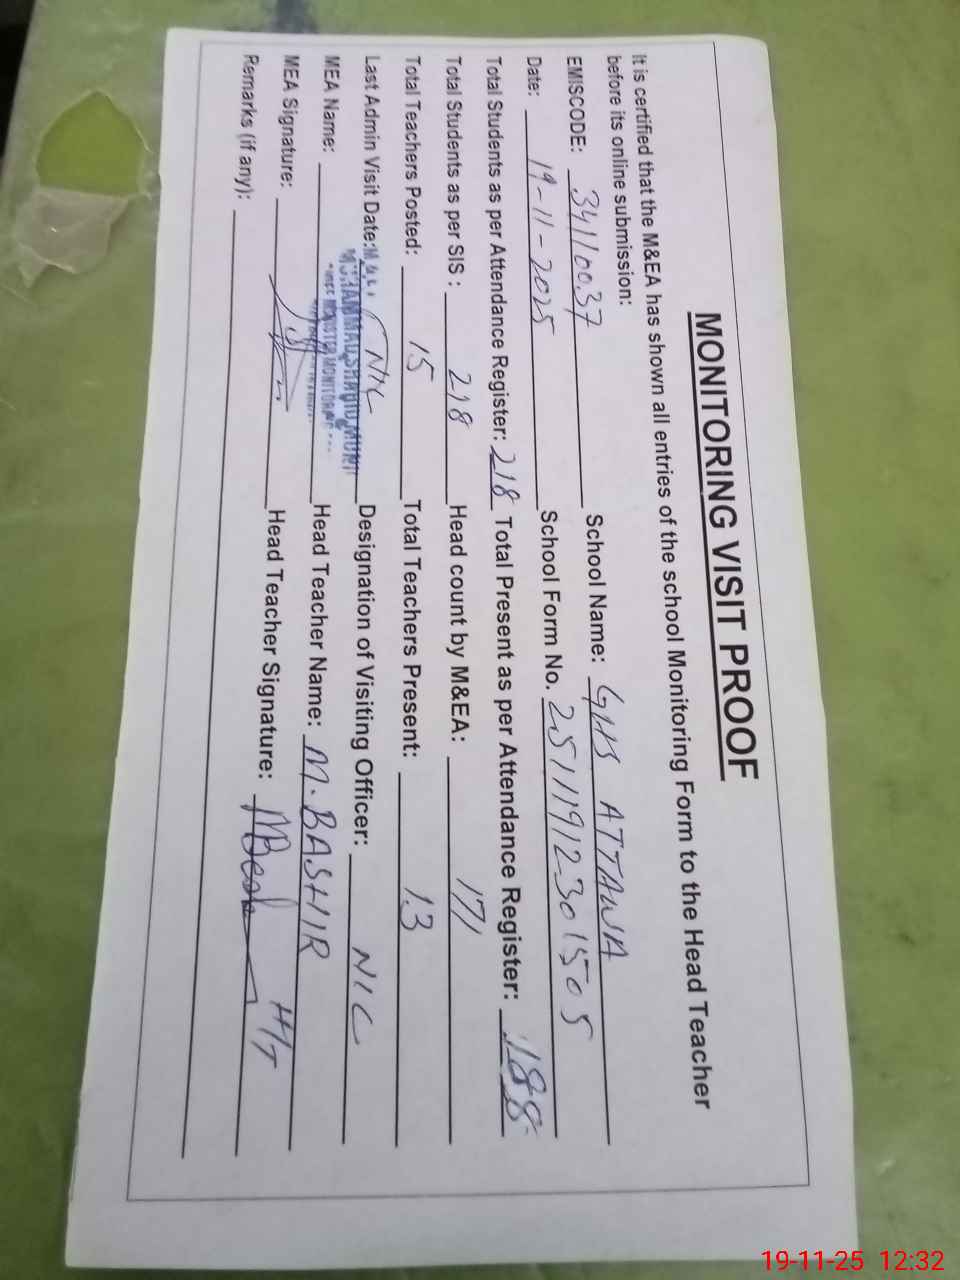 MONITORING VISIT PROOF
It is certified that the M&EA has shown all entries of the school Monitoring Form to the Head Teacher
before its online submission:
EMISCODE: 34110037 School Name: GHS ATTAWA
Date: 19-11-2025 School Form No. 2511191230 1505
Total Students as per Attendance Register: 218 Total Present as per Attendance Register: 188
Total Students as per SIS : 218 Head count by M&EA: 171
Total Teachers Posted: 15 Total Teachers Present: 13
Last Admin Visit Date: NIL Designation of Visiting Officer: NIL
MEA Name: MUHAMMAD SHAHID MUNIR Head Teacher Name: M. BASHIR
MEA Signature: Head Teacher Signature: H/T
Remarks (if any):
19-11-25 12:32